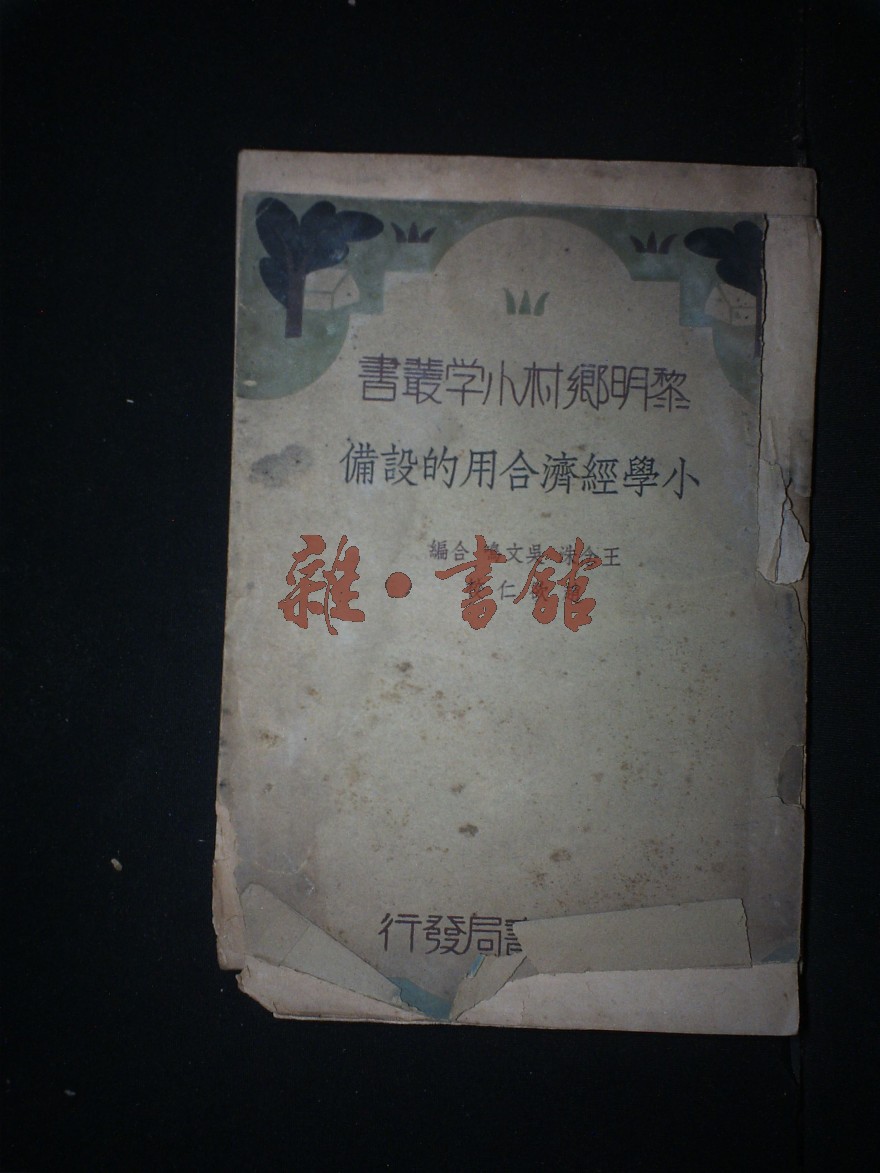 黎明鄉村小学叢書
小學經濟合用的設備
王 吳文 合編
仁
雜·書館
書局發行